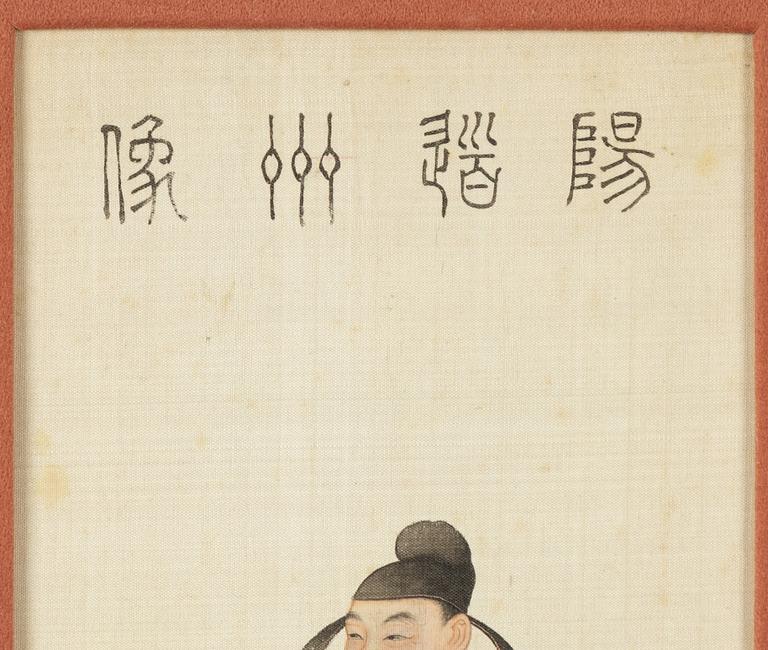 陽道州像